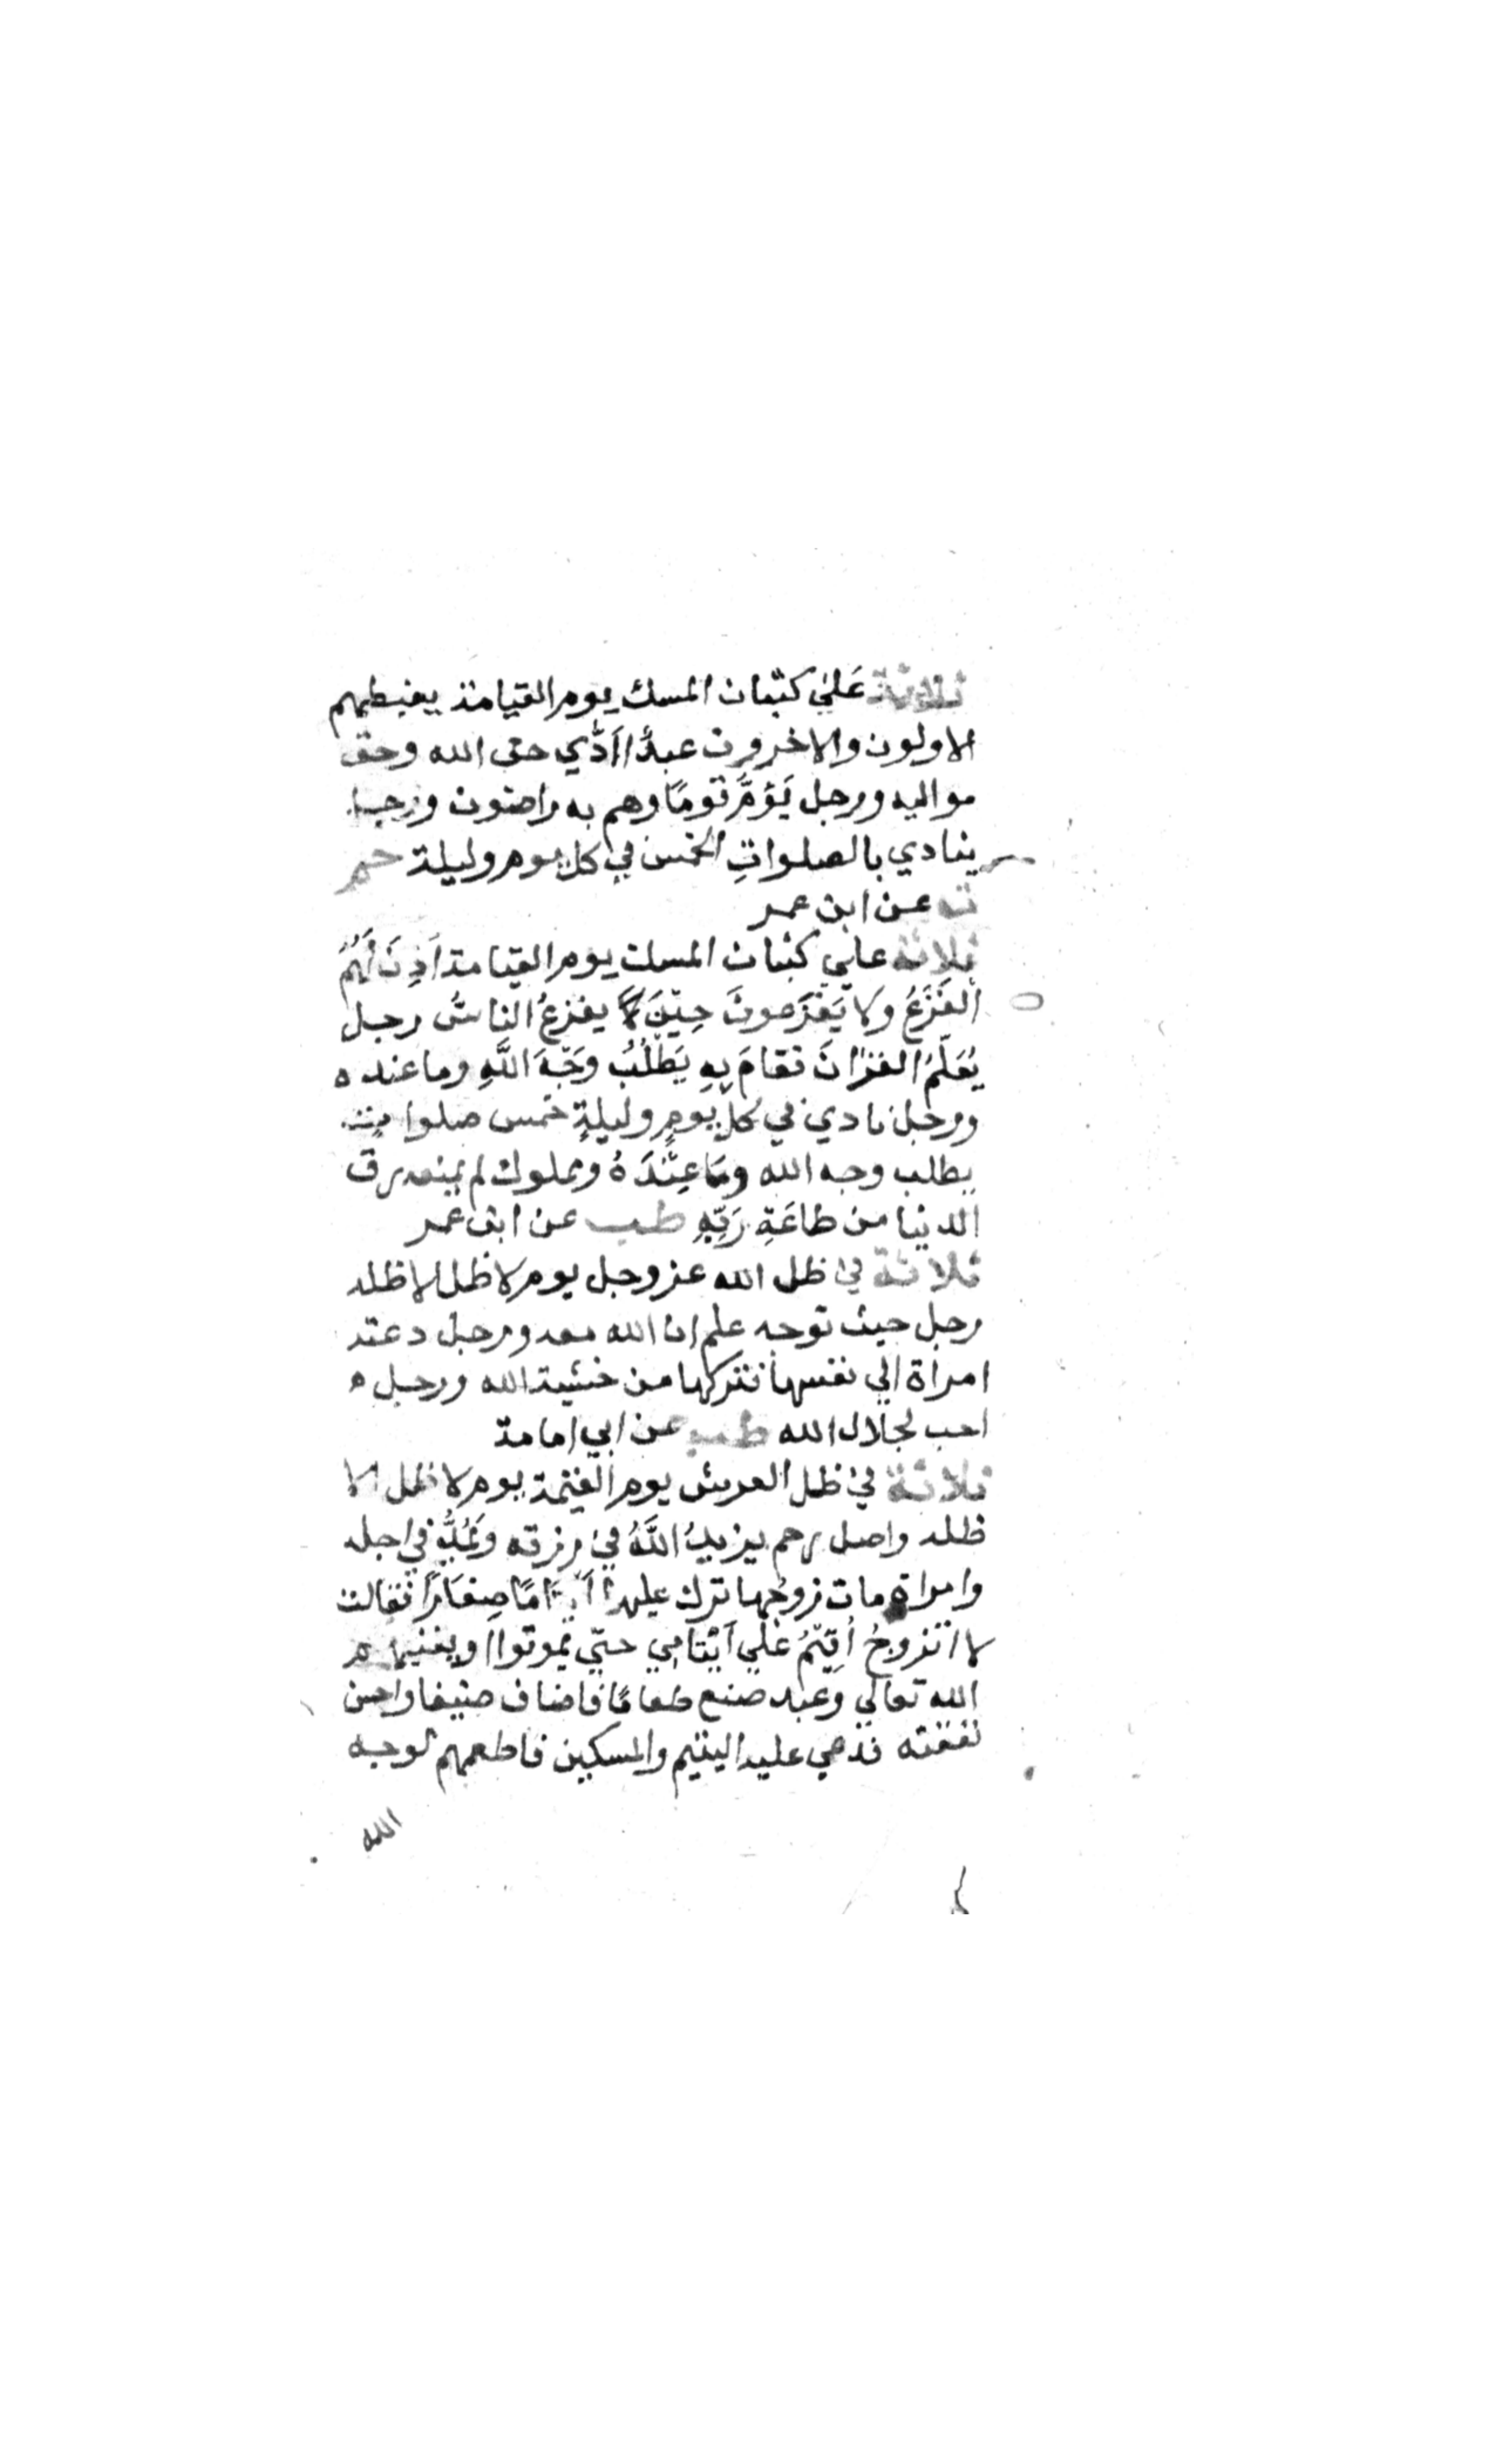 ثلاثة عَلیٰ كثبان المسك يوم القيامة يغبطهم
الاولون والاخرون عبدٌ اَدَّي حق الله وحق
مواليه ورجل يَؤمُّ قومًا وهم به راضون ورجل
ينادي بالصلواتِ الخمس في كل يوم وليلة حم
ت عن ابن عمر
ثلاثة علي كثبان المسك يوم القيامة اَذِنَ لَهُمُ
الفَزَعُ ولا يَفزَعونَ حِيْنَ يفزعُ الناسُ رجل
يُعَلِّمُ القرْانَ فقامَ بِهِ يَطْلُبُ وَجْهَ اللَّهِ وما عنده
ورجل نادي في كل يومٍ وليلةٍ خمس صلوات
يطلب وجه الله وَمَا عِنْدَهُ ومملوك لم يمنعه رق
الدنيا من طاعَةِ رَبِّهِ طب عن ابن عمر
ثلاثة في ظل الله عز وجل يوم لا ظل الا ظله
رجل حيث توجه علم ان الله معه ورجل دعته
امراة الي نفسها فتركها من خشية الله ورجل
احب لجلال الله طب عن ابي امامة
ثلاثة في ظل العرش يوم القيمة يوم لا ظل الا
ظله واصل رحم يزيدُ اللَّهُ في رزقه وَيَمُدُّ في اجله
وامراة مات زوجها ترك عليها اَيْتَامًا صِغَارًا فقالت
لا اتزوجُ اُقِيْمُ عَلي اَيْتَامِي حتي يموتوا او يغنيهم
الله تعالي وَعبد صنع طعامًا فاضاف ضيفا واحسن
نفقته فدعي عليه اليتيم والمسكين فاطعمهم لوجه
الله